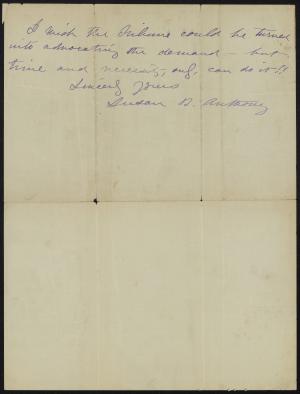 I wish the Tribune could be turned
into advocating the demand – but
time and necessity, only, can do it!!
Sincerely Yours
Susan B. Anthony